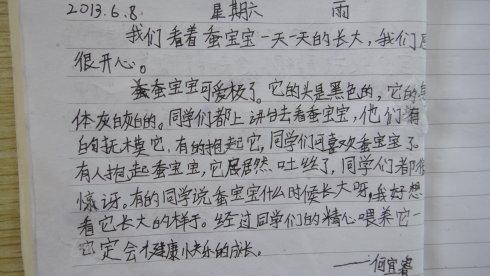 2013.6.8. 星期六 雨
我们看着蚕宝宝一天一天的长大，我们
很开心。
蚕蚕宝宝可爱极了。它的头是黑色的，它的
体灰白灰白的。同学们都上讲台去看蚕宝宝，他们有
的抚摸它，有的抱起它，同学们可喜欢蚕宝宝了。
有人抱起蚕宝宝，它居居然吐丝了，同学们都很
惊讶。有的同学说蚕宝宝什么时候长大呀，我好想
看它长大的样子。经过同学们的精心喂养它一
它定会健康快乐的成长。
——何宜睿